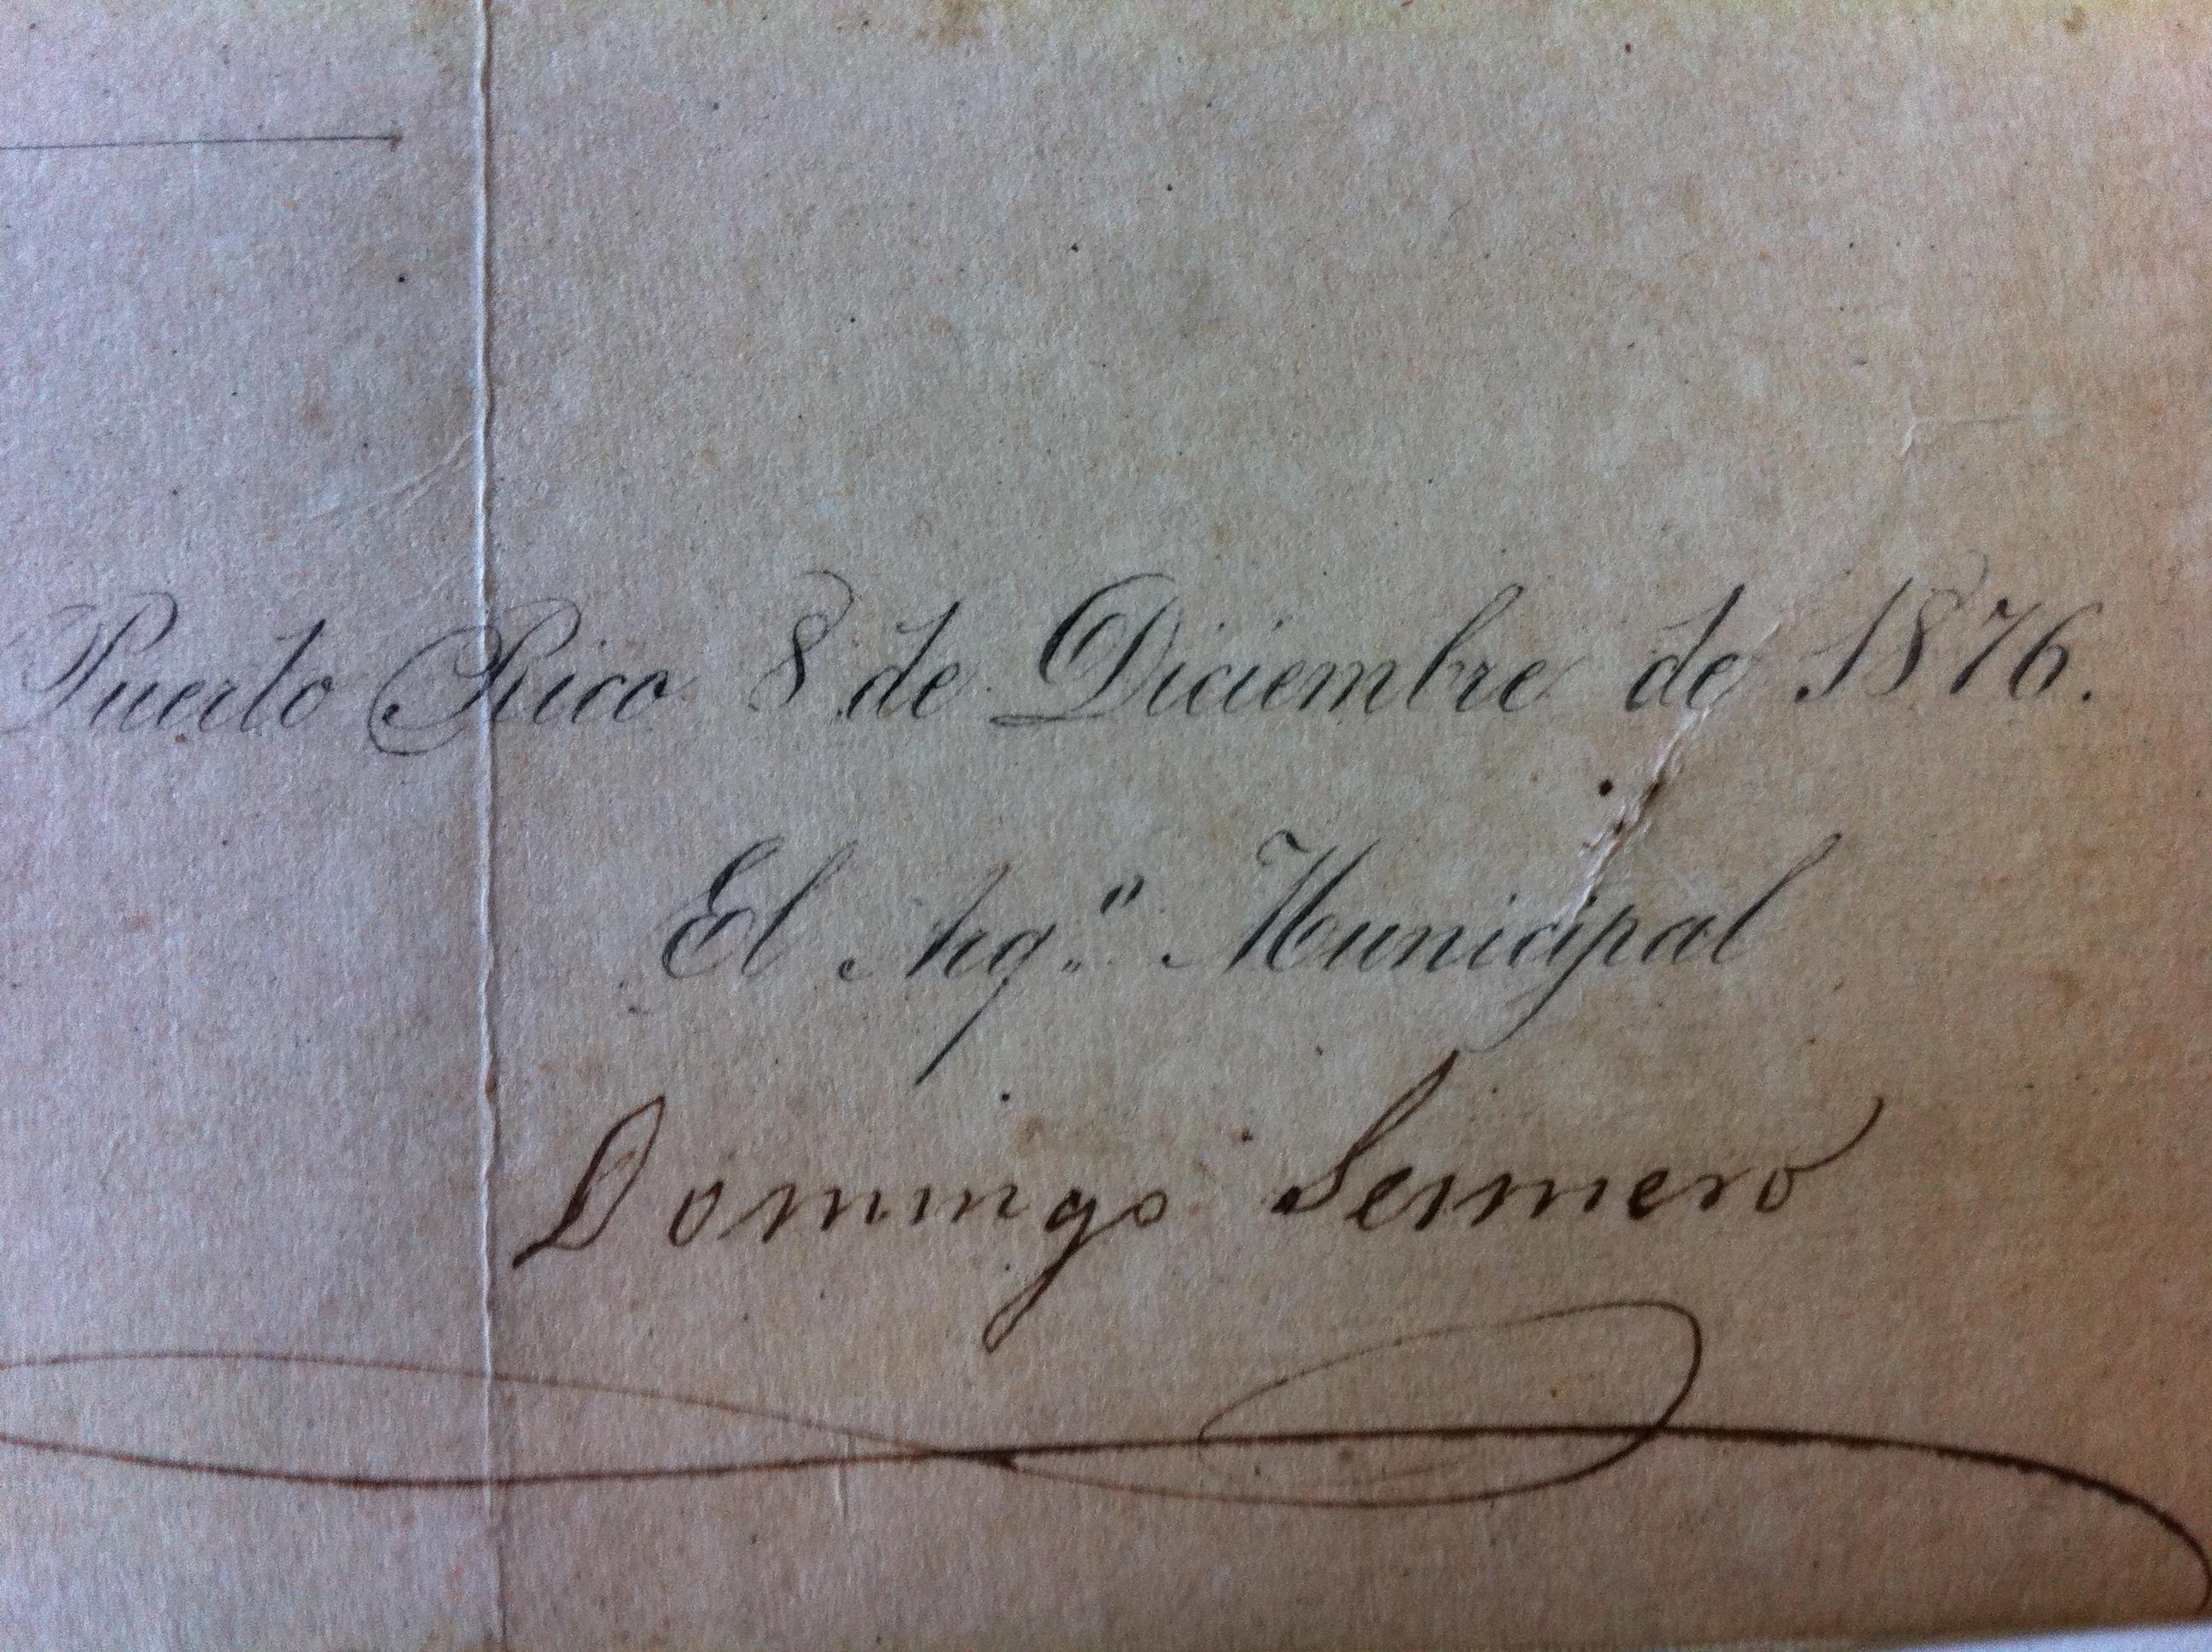 Puerto Rico 8 de Diciembre de 1876.
El Arq.º Municipal
Domingo Sesmero